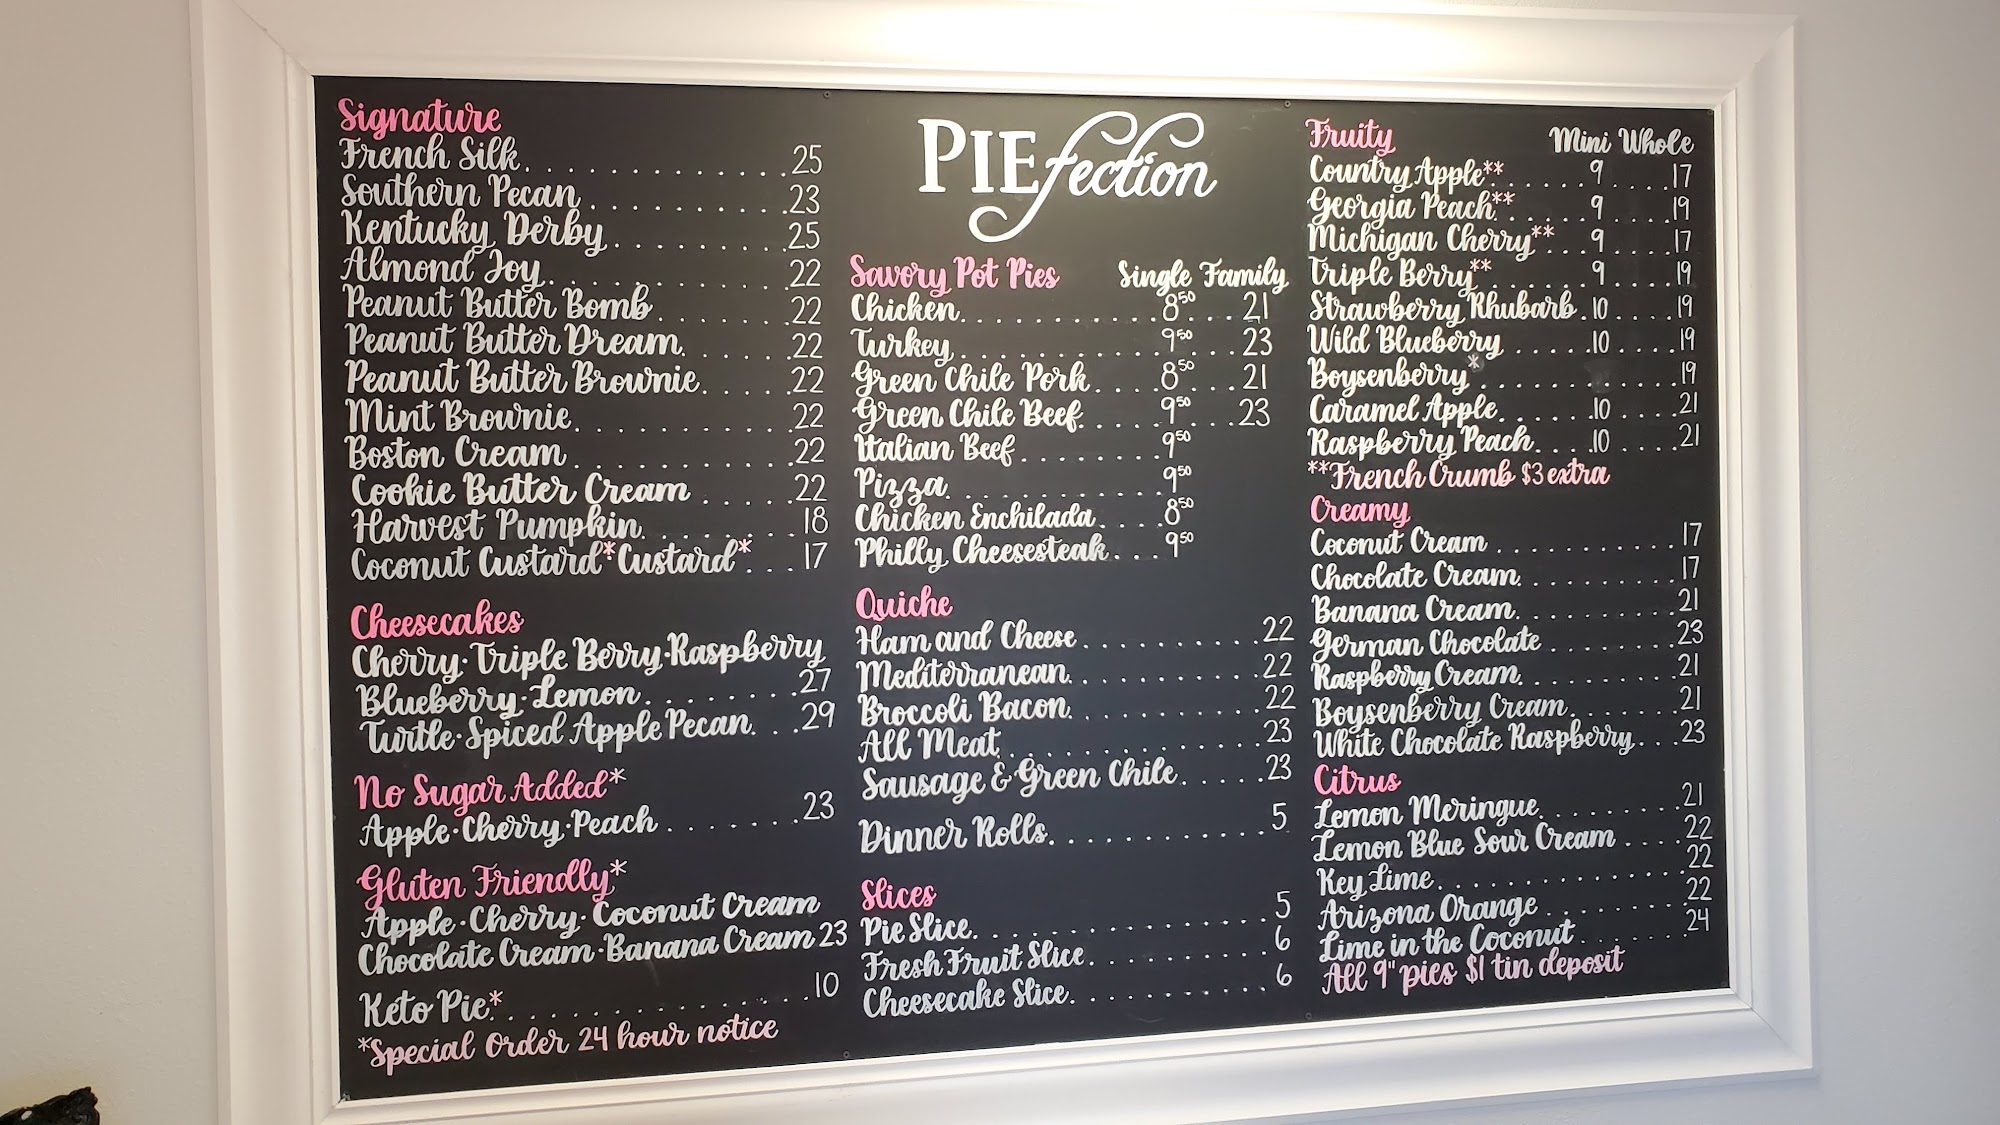 Signature
French Silk. . . . . . . . . . . . . .25
Southern Pecan . . . . . . . . . .23
Kentucky Derby. . . . . . . . .25
Almond Joy. . . . . . . . . . . . 22
Peanut Butter Bomb . . . . . . . 22
Peanut Butter Dream. . . . . . 22
Peanut Butter Brownie. . . . . 22
Mint Brownie. . . . . . . . . . .22
Boston Cream . . . . . . . . . . .22
Cookie Butter Cream . . . . .22
Harvest Pumpkin. . . . . . . . 18
Coconut Custard*Custard*. . . 17
Cheesecakes
Cherry·Triple Berry·Raspberry
Blueberry·Lemon. . . . . . . .27
Turtle·Spiced Apple Pecan. . .29
No Sugar Added*
Apple·Cherry·Peach . . . . . . . 23
Gluten Friendly*
Apple·Cherry·Coconut Cream
Chocolate Cream·Banana Cream 23
Keto Pie*. . . . . . . . . . . . . . .10
*Special Order 24 hour notice
PIEfection
Savory Pot Pies Single Family
Chicken. . . . . . . . . . . 8⁵⁰. . . .21
Turkey. . . . . . . . . . . 9⁵⁰. . . .23
Green Chile Pork. . . . 8⁵⁰. . . .21
Green Chile Beef. . . . .9⁵⁰. . . .23
Italian Beef. . . . . . . . 9⁵⁰
Pizza. . . . . . . . . . . . 9⁵⁰
Chicken Enchilada. . . .8⁵⁰
Philly Cheesesteak. . . 9⁵⁰
Quiche
Ham and Cheese. . . . . . . . . . 22
Mediterranean. . . . . . . . . . .22
Broccoli Bacon. . . . . . . . . . .22
All Meat. . . . . . . . . . . . . . 23
Sausage & Green Chile. . . . . .23
Dinner Rolls. . . . . . . . . . . . 5
Slices
Pie Slice. . . . . . . . . . . . . . . 5
Fresh Fruit Slice. . . . . . . . . . 6
Cheesecake Slice. . . . . . . . . . 6
Fruity Mini Whole
Country Apple**. . . . . . 9 . . . .17
Georgia Peach**. . . . . . 9. . . . .19
Michigan Cherry**. . . 9. . . . .17
Triple Berry**. . . . . . . 9. . . . .19
Strawberry Rhubarb. 10 . . . . .19
Wild Blueberry . . . . .10 . . . . .19
Boysenberry*. . . . . . . . . . . . . 19
Caramel Apple. . . . . .10 . . . . .21
Raspberry Peach. . . . .10 . . . . .21
**French Crumb $3 extra
Creamy
Coconut Cream . . . . . . . . . . .17
Chocolate Cream. . . . . . . . . .17
Banana Cream. . . . . . . . . . .21
German Chocolate . . . . . . . . 23
Raspberry Cream. . . . . . . . . .21
Boysenberry Cream. . . . . . . .21
White Chocolate Raspberry. . .23
Citrus
Lemon Meringue. . . . . . . . . .21
Lemon Blue Sour Cream . . . . 22
Key Lime. . . . . . . . . . . . . . .22
Arizona Orange . . . . . . . . . .22
Lime in the Coconut . . . . . . . 24
All 9" pies $1 tin deposit